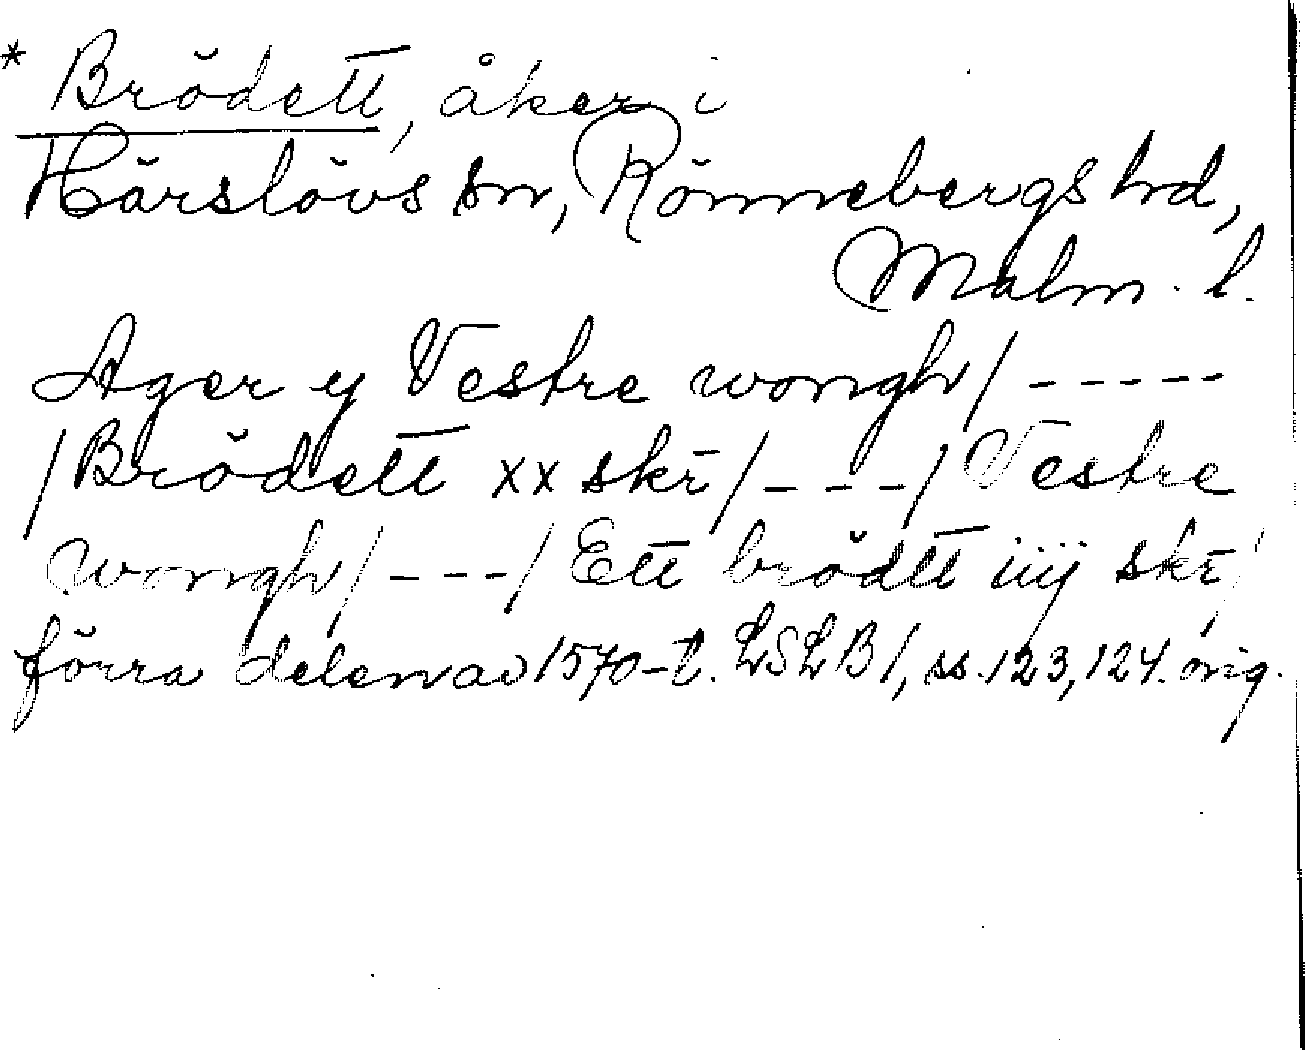 * Brödett, åker i
Härslövs sn, Rönnebergs hd,
Malm. l.
Ager y Vestre wongh / -----
/ Brödett xx skr̄ / --- / Vestre
wongh / --- / Ett brödtt iiij skr̄ /
förra delen av 1570-t. LSLB 1, ss. 123, 124. orig.